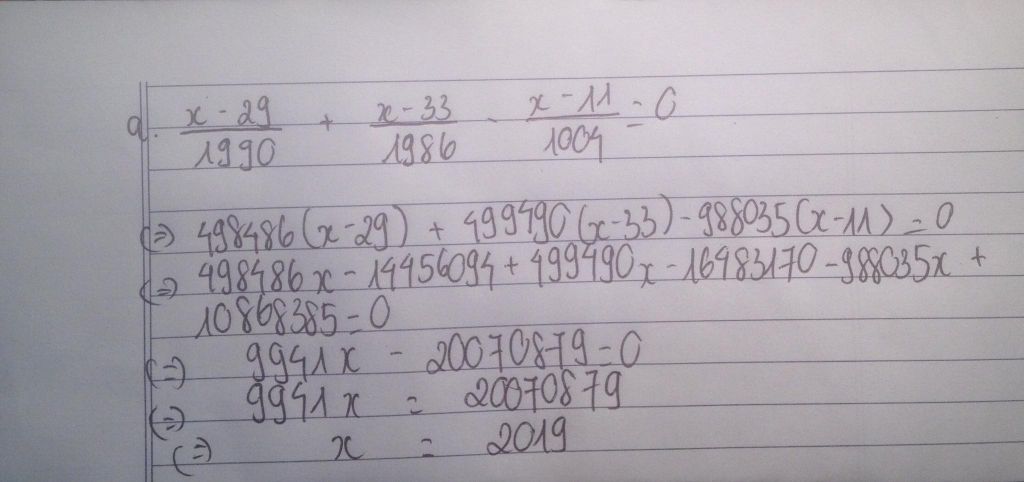 a. x - 29 / 1990 + x - 33 / 1986 - x - 11 / 1004 = 0
(=) 498486(x - 29) + 499490(x - 33) - 988035(x - 11) = 0
(=) 498486x - 14456094 + 499490x - 16483170 - 988035x +
10868385 = 0
(=) 9941x - 20070879 = 0
(=) 9941x = 20070879
(=) x = 2019